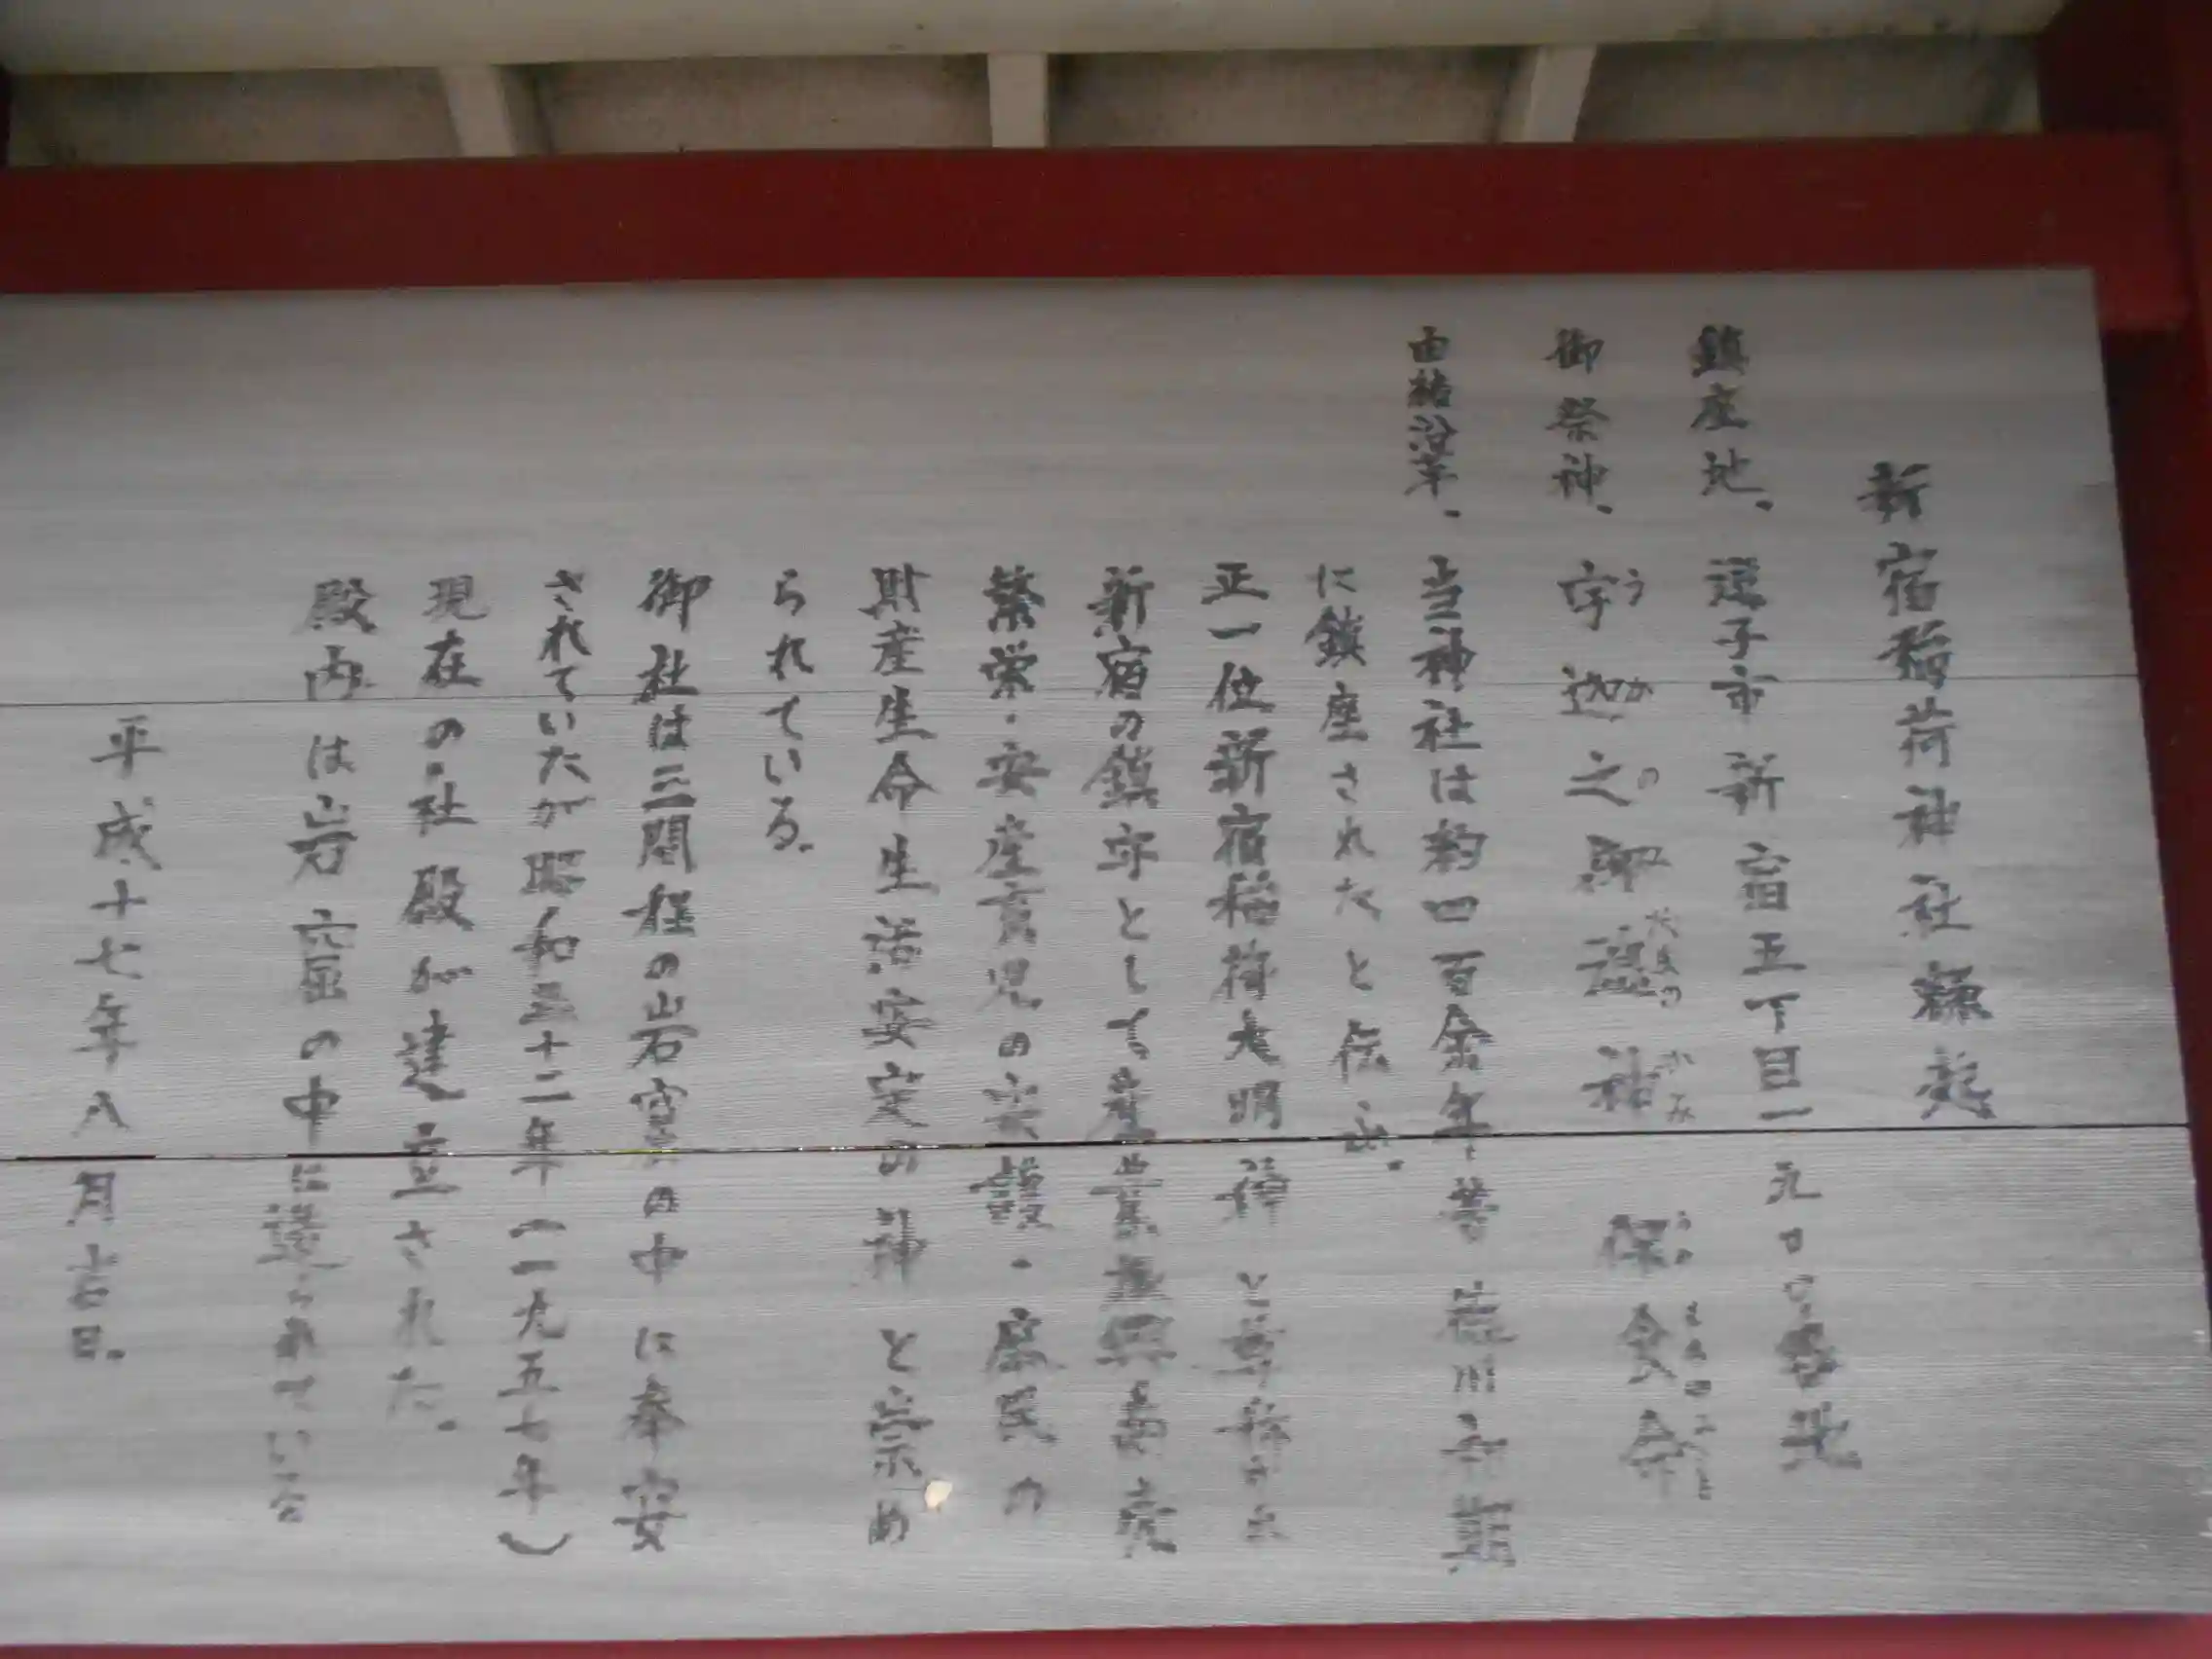 新宿稲荷神社縁起
鎮座地、逗子市新宿五丁目一九
御祭神、宇迦之御魂神 保食命
由緒沿革、当神社は約四百余年昔徳川初期
に鎮座されたと伝ふ。
正一位新宿稲荷大明神と尊称され
新宿の鎮守として産業振興商売
繁栄・安産育児の守護・庶民の
財産生命生活安定の神と崇め
られている。
御社は三間程の岩窟の中に奉安
されていたが昭和三十二年(一九五七年)
現在の社殿が建立された。
殿内は岩窟の中に造られている
平成十七年八月吉日。